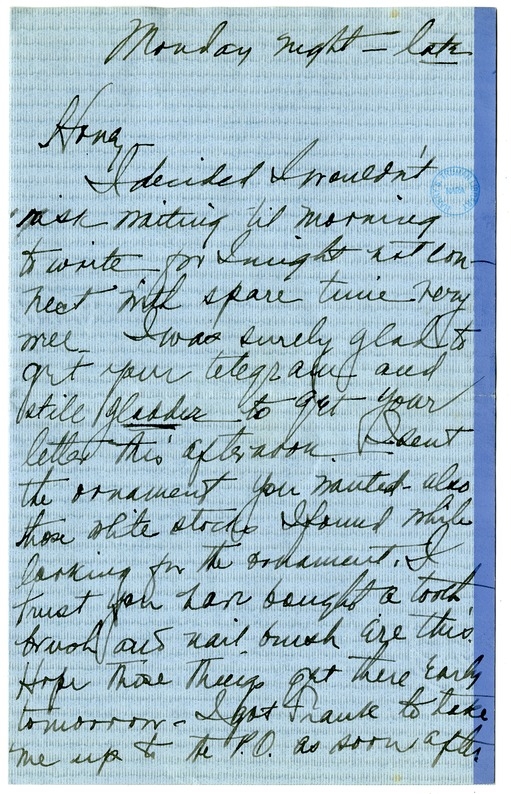 Monday night - late
Honey
I decided I wouldn't
risk waiting 'til morning
to write for I might not con-
nect with spare time very
well. I was surely glad to
get your telegram and
still gladder to get your
letter this afternoon. I sent
the ornament you wanted - also
those white stocks I found while
looking for the ornament. I
trust you have bought a tooth
brush and nail brush ere this.
Hope those things get there early
tomorrow - I got Frank to take
me up to the P.O. as soon after